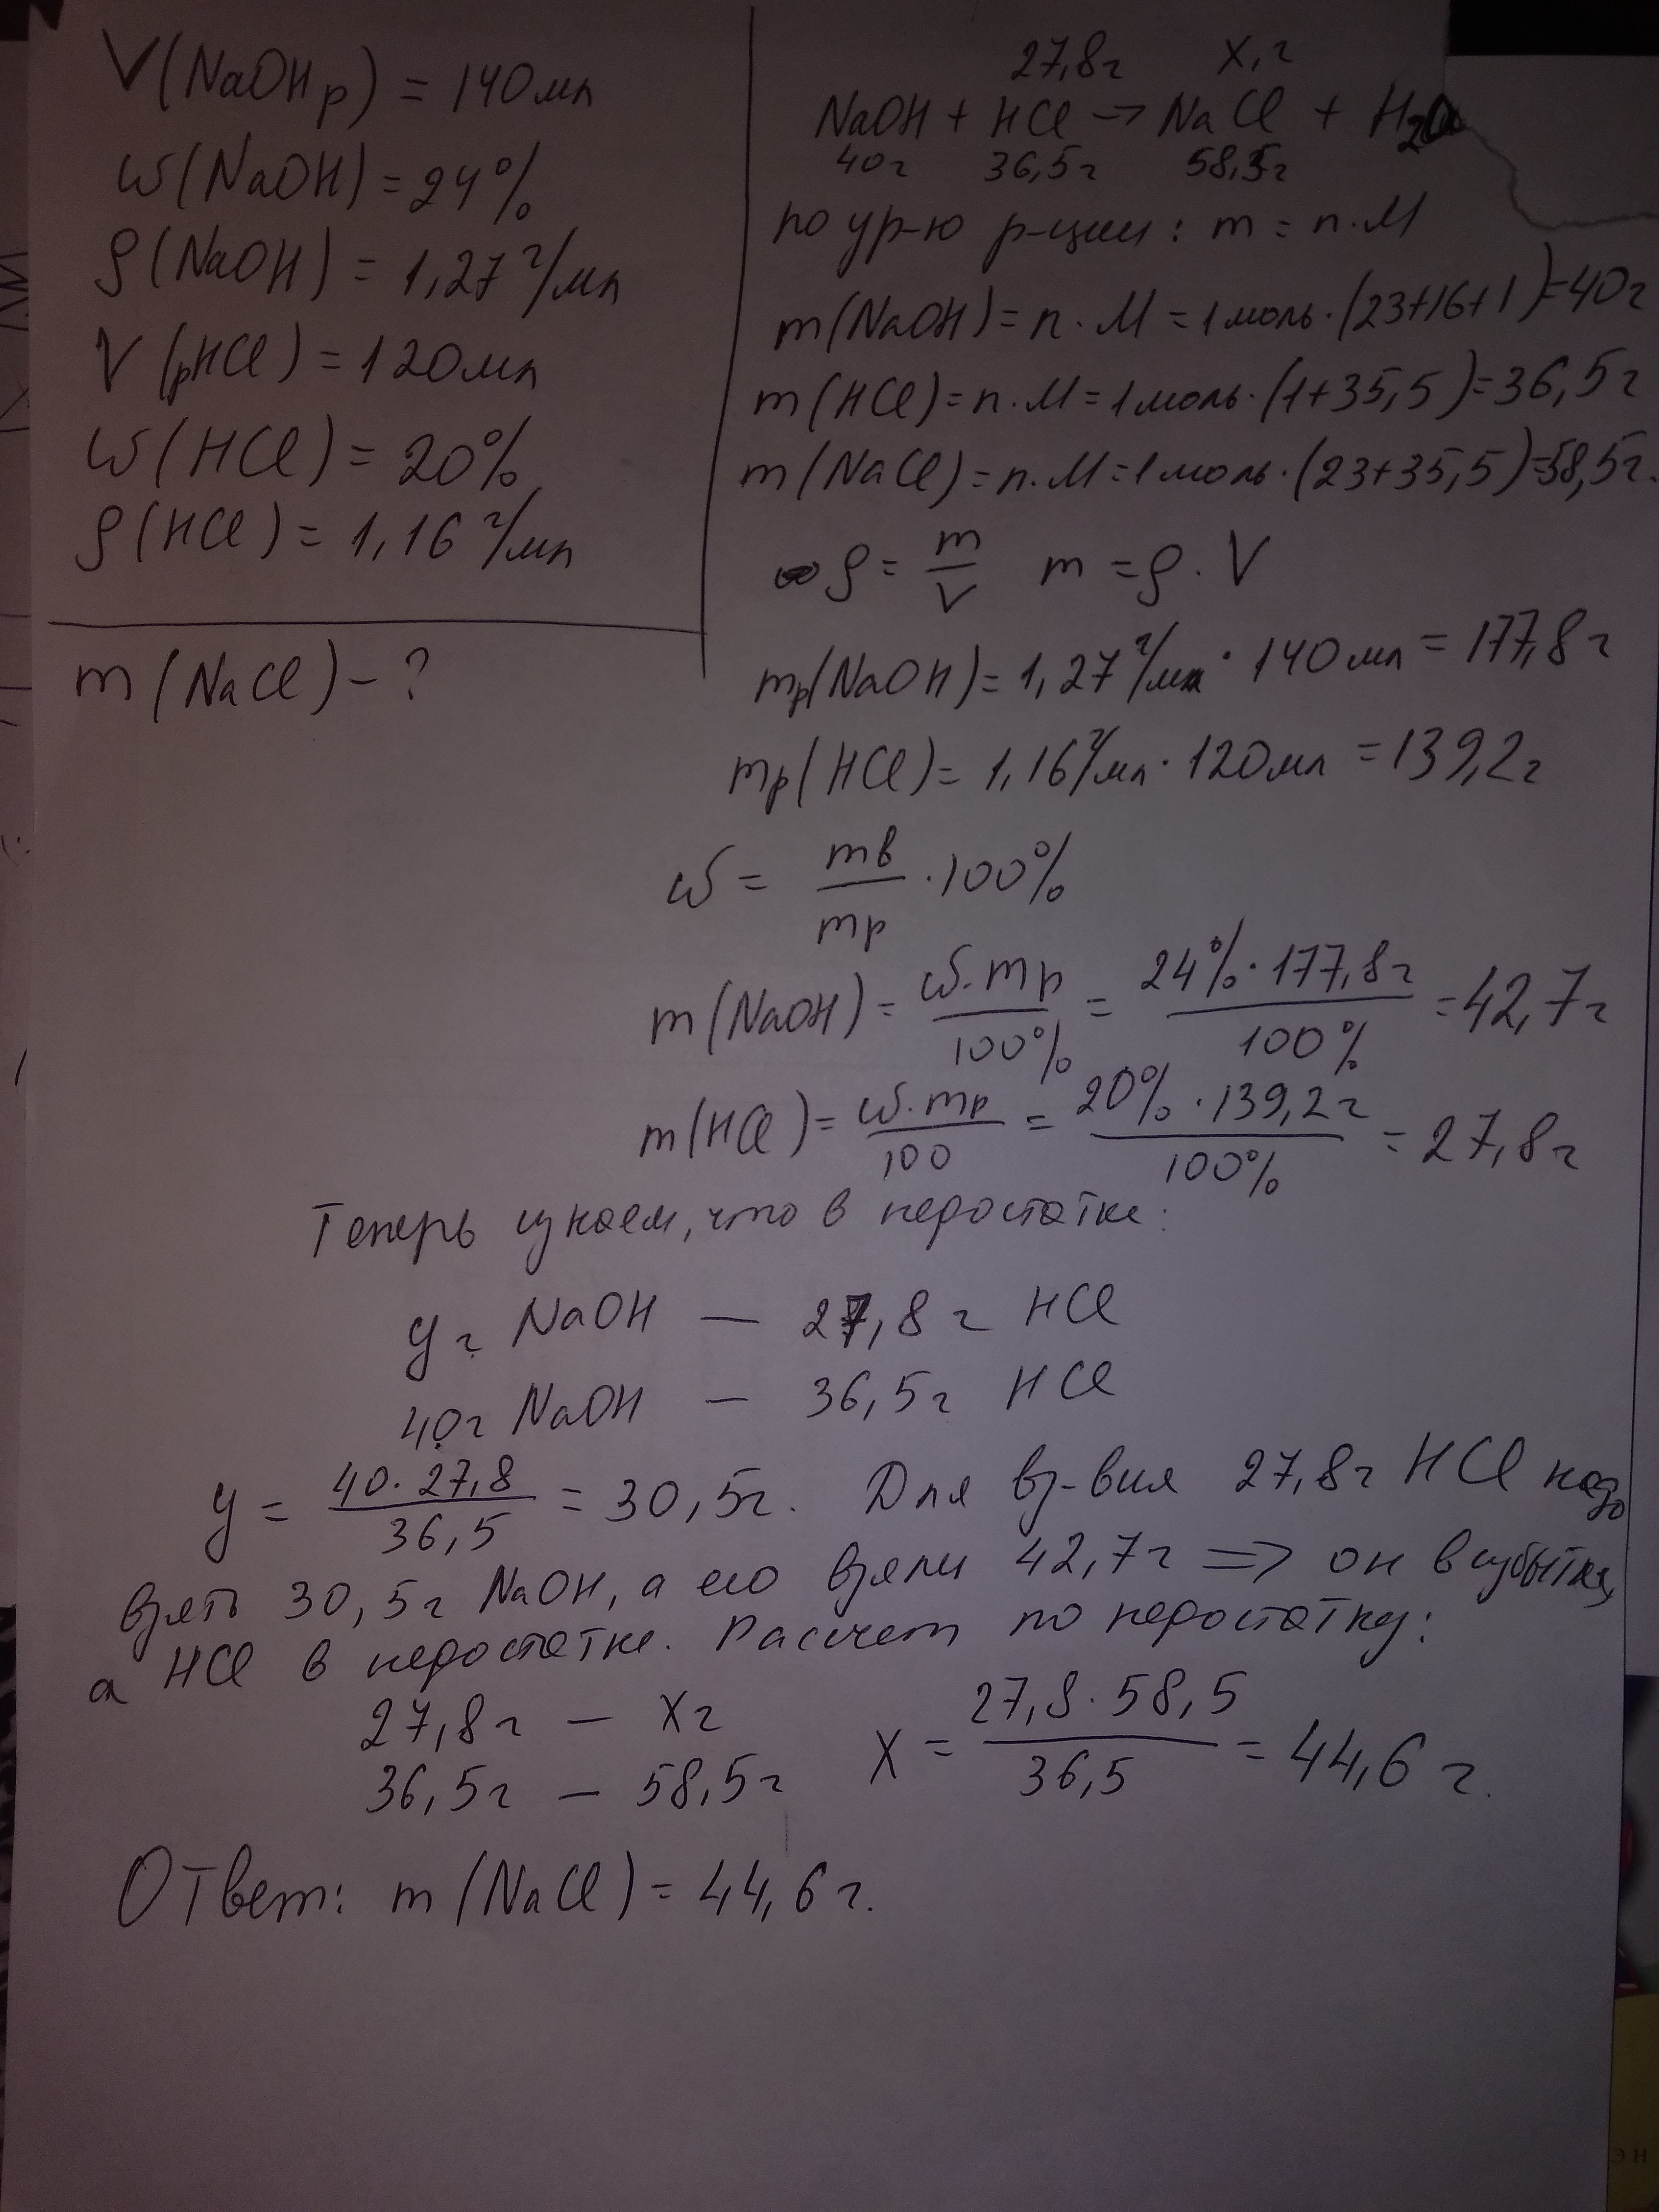 V(NaOHр) = 140мл
ω(NaOH) = 24%
ρ(NaOH) = 1,27 г/мл
V(рHCl) = 120мл
ω(HCl) = 20%
ρ(HCl) = 1,16 г/мл
m(NaCl) - ?
27,8г x,г
NaOH + HCl → NaCl + H2O
40г 36,5г 58,5г
по ур-ю р-ции: m = n·M
m(NaOH) = n·M = 1моль·(23+16+1)=40г
m(HCl) = n·M = 1моль·(1+35,5)=36,5г
m(NaCl) = n·M = 1моль·(23+35,5)=58,5г.
ρ = m/V m = ρ·V
mр(NaOH) = 1,27 г/мл · 140мл = 177,8г
mр(HCl) = 1,16 г/мл · 120мл = 139,2г
ω = mв/mр · 100%
m(NaOH) = ω·mр/100% = 24%·177,8г/100% = 42,7г
m(HCl) = ω·mр/100 = 20%·139,2г/100% = 27,8г
Теперь узнаем, что в недостатке:
y г NaOH — 27,8 г HCl
40г NaOH — 36,5г HCl
y = 40·27,8/36,5 = 30,5г. Для вз-вия 27,8г HCl надо
взять 30,5г NaOH, а его взяли 42,7г => он в избытке,
а HCl в недостатке. Расчет по недостатку:
27,8г — xг
36,5г — 58,5г
x = 27,8·58,5/36,5 = 44,6 г.
Ответ: m(NaCl) = 44,6г.